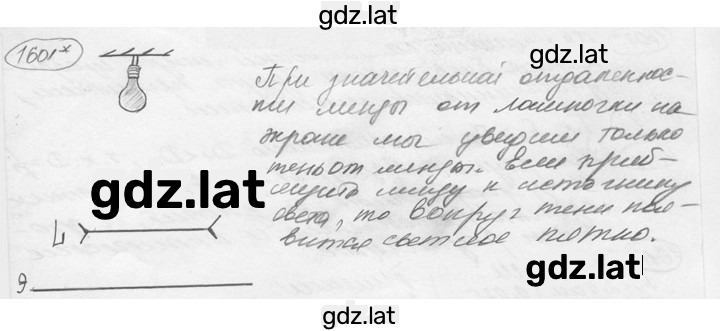 gdz.lat
1601*
При значительной отдаленнос-
ти линзы от лампочки на
экране мы увидим только
тень от линзы. Если приб-
лизить линзу к источнику
света, то вокруг тени поя-
вится светлое пятно.
gdz.lat
L
gdz.lat
Э
gdz.lat